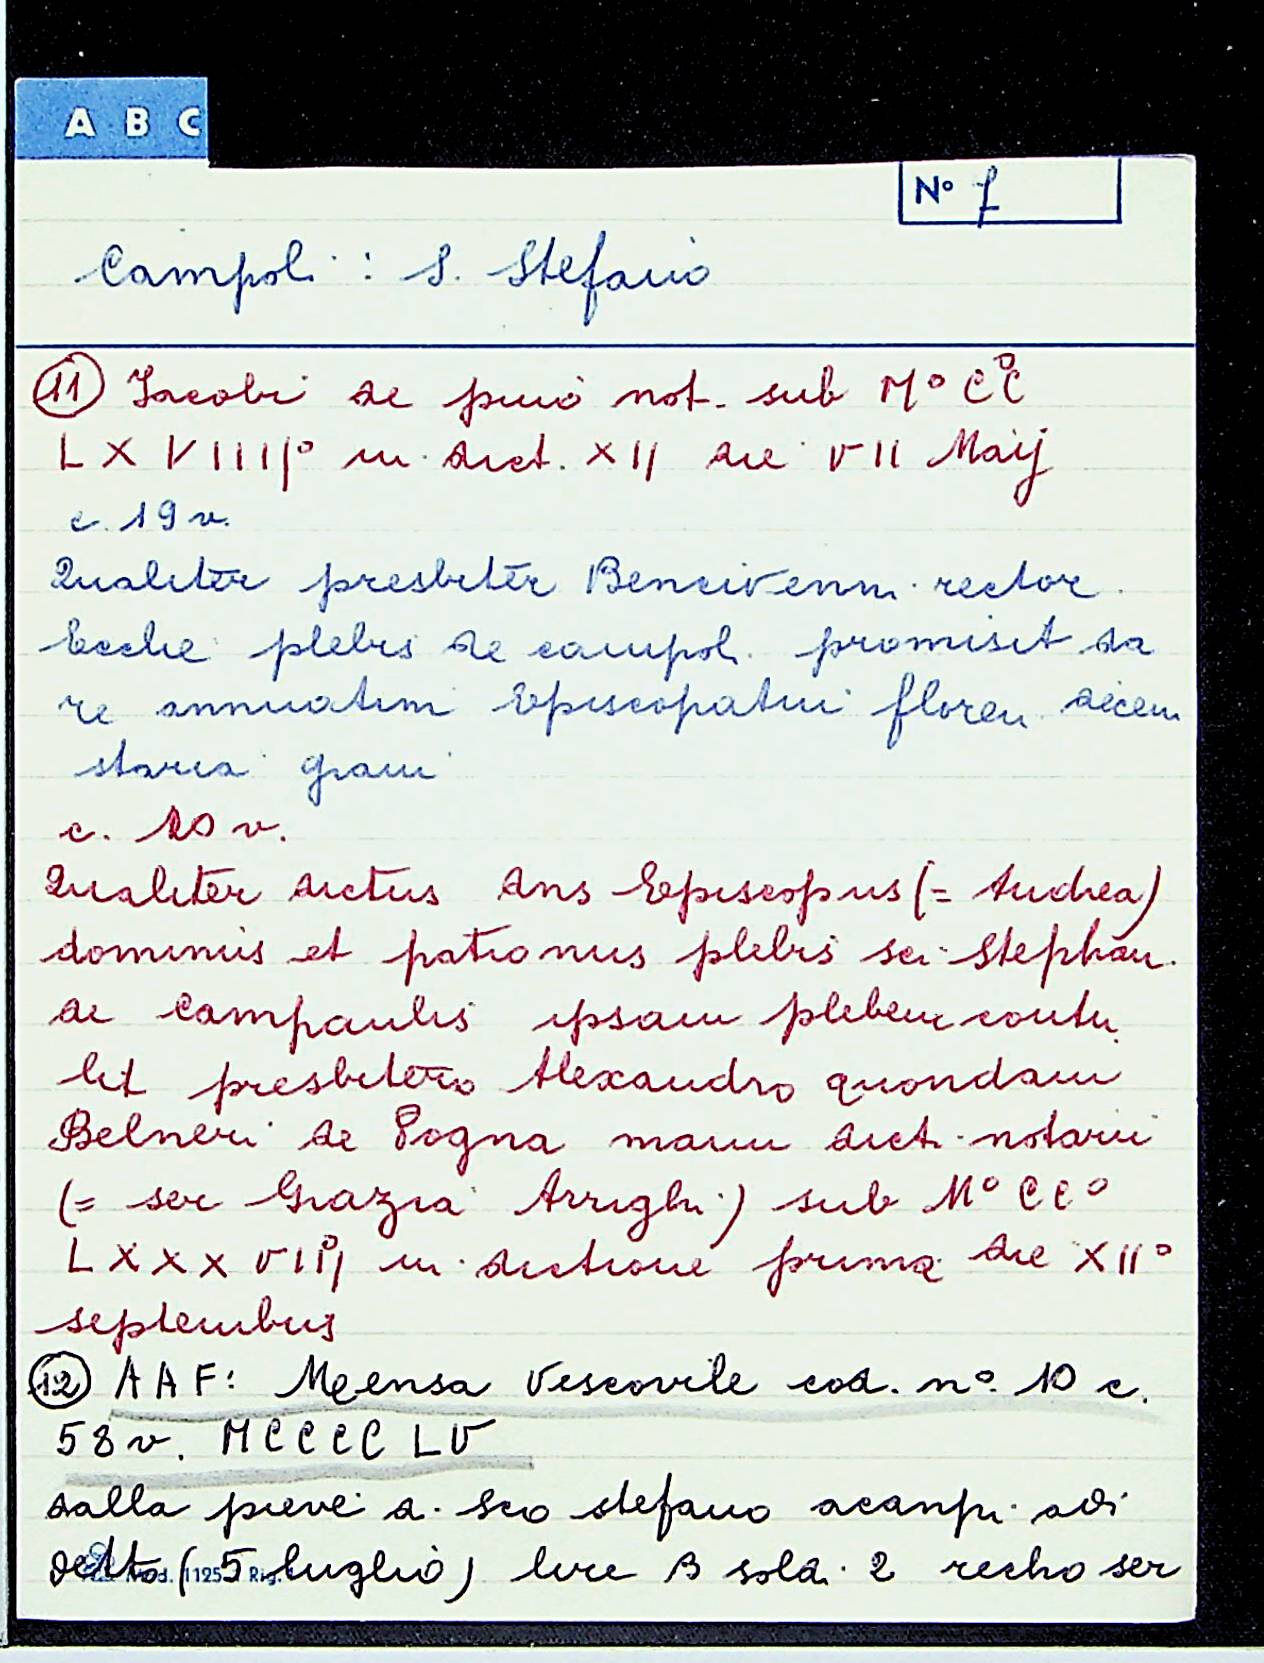 A B C
N° 7
Campoli : S. Stefano
(11) Jacobi de puio not. sub M° CC°
LXVIIII° indict. XII die VII Maij
c. 19 v.
Qualiter presbiter Bencivenni rector
Ecclie plebis de campoli promisit da
re annuatim Episcopatui floren decem
staria grani
c. 20 v.
Qualiter dictus dns Episcopus (= Andrea)
dominus et patronus plebis sci Stephani
de Campaulis ipsam plebem contu
lit presbitero Alexandro quondam
Belneri de Pogna manu dicti notarii
(= ser Grazia Arrighi) sub M° CC°
LXXXVII° indictione prima die XII°
septembris
(12) AAF: Mensa Vescovile cod. n° 10 c.
58 v. MCCCC LV
dalla pieve di Sco stefano acanpi adi
detto (5 luglio) lire 13 soldi 2 recho ser
Mod. 1125 Rig.